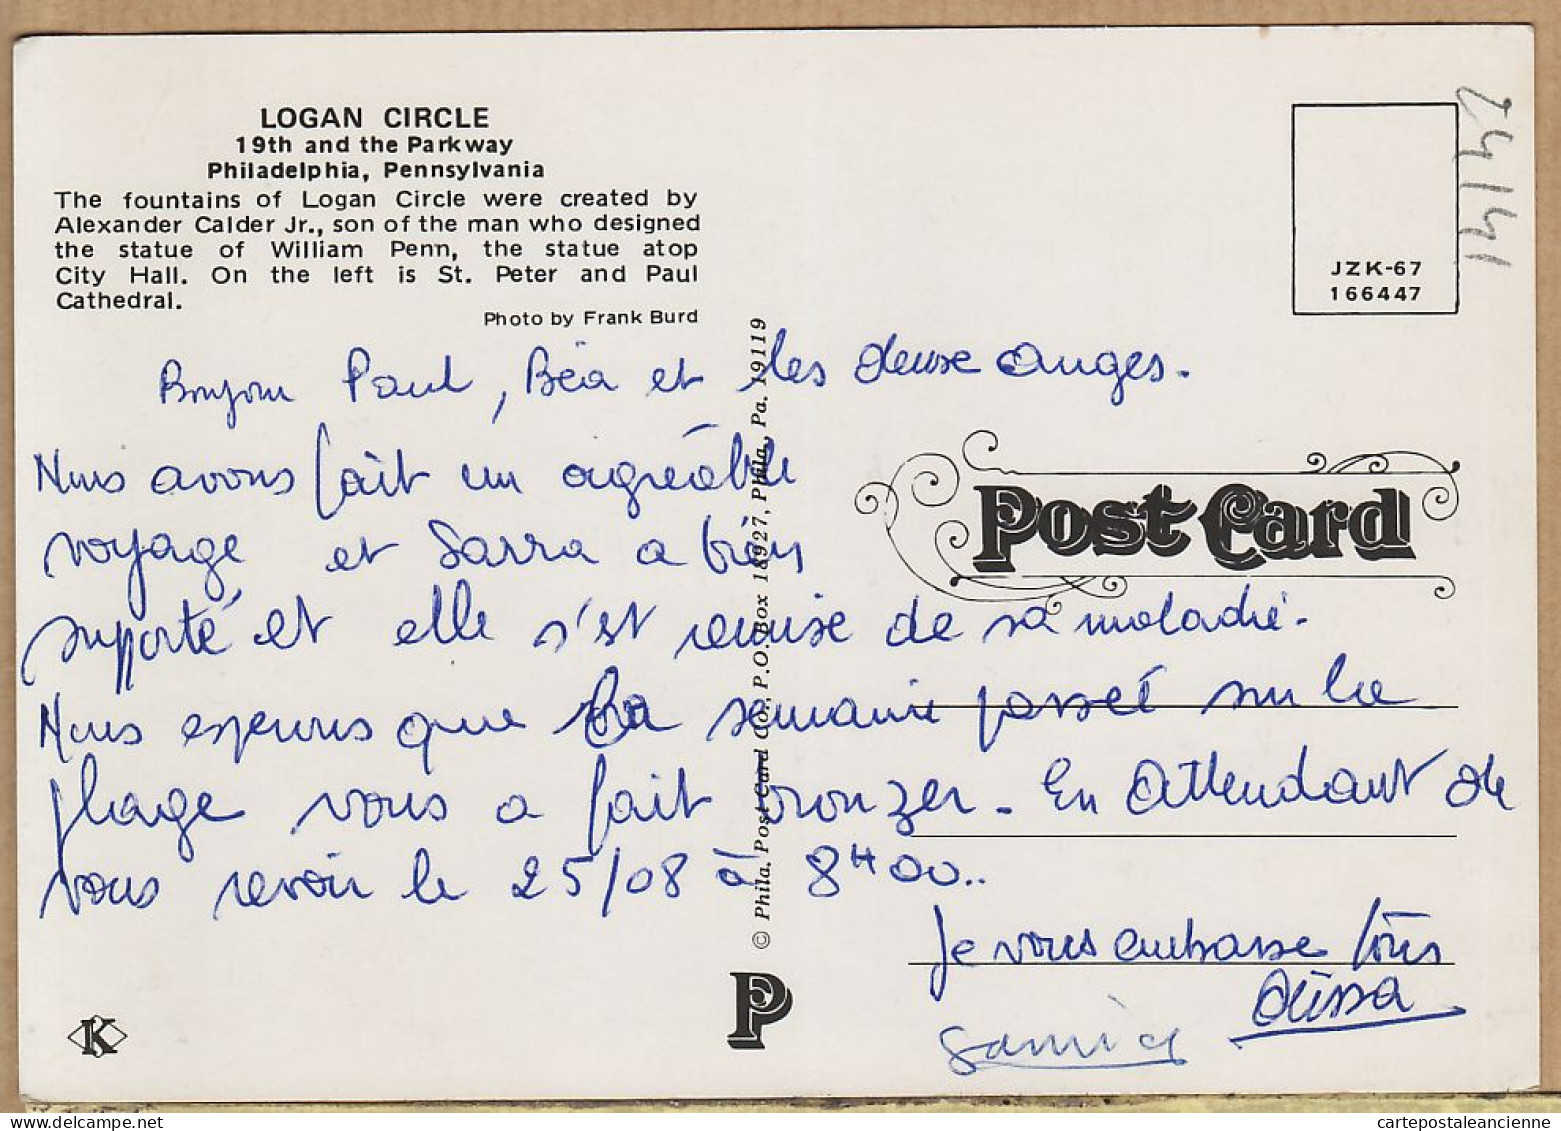 LOGAN CIRCLE
19th and the Parkway
Philadelphia, Pennsylvania
The fountains of Logan Circle were created by
Alexander Calder Jr., son of the man who designed
the statue of William Penn, the statue atop
City Hall. On the left is St. Peter and Paul
Cathedral.
Photo by Frank Burd
24141
JZK-67
166447
Bonjour Paul, Béa et les deux anges.
Nous avons fait un agréable
voyage et Sarra a bien
supporté et elle s'est remise de sa maladie.
Nous espérons que la semaine passé sur la
plage vous a fait bronzer. En attendant de
vous revoir le 25/08 à 8H00..
Je vous embrasse tous
Samia
Post Card
© Phila. Post Card Co., P.O. Box 18927, Phila., Pa. 19119
K
P
cartepostaleancienne